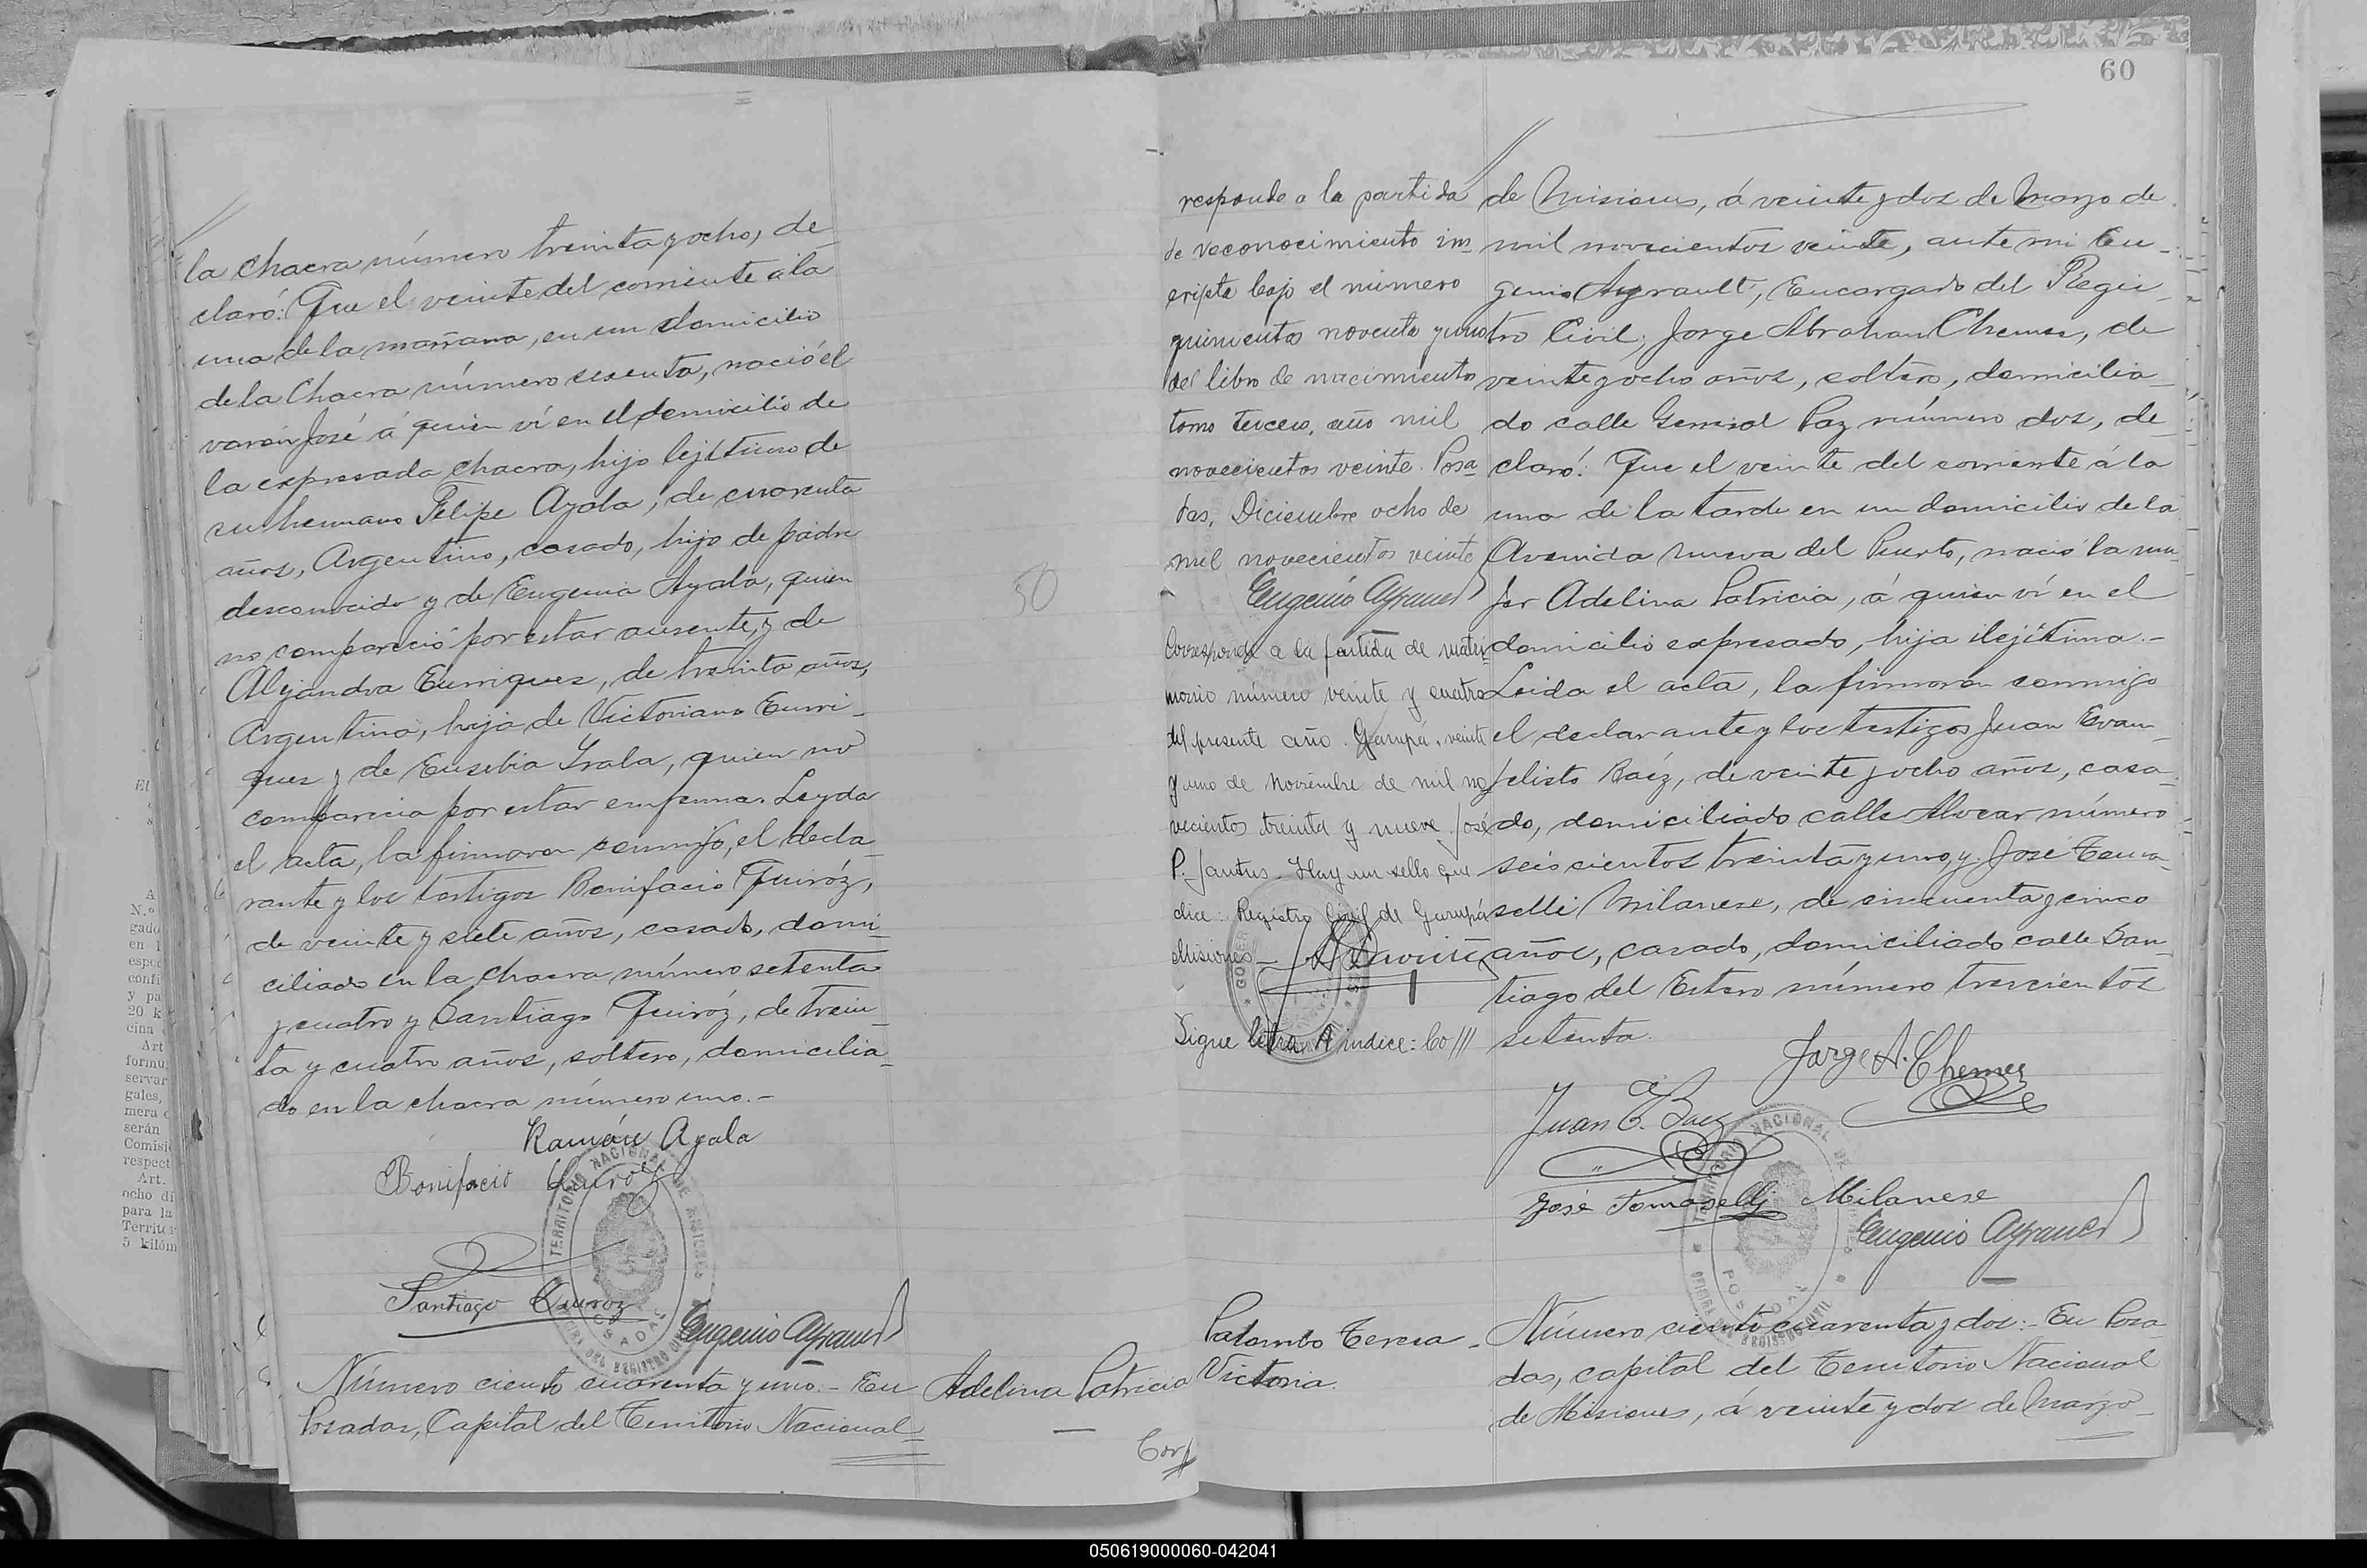 la Chacra número treinta y ocho, de-
claró: Que el veinte del corriente á la
una de la mañana, en un domicilio
de la Chacra número sesenta, nació el
varón José á quien ví en el domicilio de
la expresada chacra, hijo lejítimo de
su hermano Felipe Ayala, de cuarenta
años, Argentino, casado, hijo de padre
desconocido y de Eugenia Ayala, quien
no compareció por estar ausente, y de
Alejandra Enrriquez, de treinta años,
Argentina, hija de Victoriano Enrri-
quez y de Eusebia Irala, quien no
comparecia por estar enferma. Leyda
el acta, la firmaron conmigo, el decla-
rante y los testigos Bonifacio Quiróz,
de veinte y siete años, casado, domi-
ciliado en la chacra número setenta
y cuatro y Santiago Quiróz, de trein-
ta y cuatro años, soltero, domicilia-
do en la chacra número uno.-
Ramón Ayala
Bonifacio Quiroz
Santiago Quiroz
Eugenio Ayrault
TERRITORIO NACIONAL DE MISIONES
POSADAS
OFICINA DEL REGISTRO CIVIL
50
Número ciento cuarenta y uno.- En
Posadas, Capital del Territorio Nacional
Adelina Patricia
Cor
60
responde a la partida
de reconocimiento ins
cripta bajo el número
quinientos noventa y uno
del libro de nacimiento
tomo tercero, año mil
novecientos veinte. Posa-
das, Diciembre ocho de
mil novecientos veinte
Eugenio Ayrault
Corresponde a la partida de matri-
monio número veinte y cuatro
del presente año. Garupá, veinte
y uno de Noviembre de mil no
vecientos treinta y nueve. José
P. Santus. Hay un sello que
dice: Registro Civil de Garupá
Misiones—
Sigue letra A indice: 60///
de Misiones, á veinte y dos de Marzo de
mil novecientos veinte, ante mi Eu-
genio Ayrault, Encargado del Regis-
tro Civil; Jorge Abraham Chemes, de
veinte y ocho años, soltero, domicilia-
do calle General Paz número dos, de-
claró: Que el veinte del corriente á la
una de la tarde en un domicilio de la
Avenida nueva del Puerto, nació la mu-
jer Adelina Patricia, á quien ví en el
domicilio expresado, hija ilejítima.-
Leida el acta, la firmaron conmigo
el declarante y los testigos Juan Evan-
jelisto Baéz, de veinte y ocho años, casa-
do, domiciliado calle Alvear número
seiscientos treinta y uno, y José Toma-
selli Milanese, de cincuenta y cinco
años, casado, domiciliado calle San-
tiago del Estero número trescientos
setenta.
Jorge A. Chemes
Juan E. Baez
José Tomaselli Milanese
Eugenio Ayrault
TERRITORIO NACIONAL DE MISIONES
POSADAS
OFICINA DEL REGISTRO CIVIL
Palombo Teresa
Victoria.
Número ciento cuarenta y dos:- En Posa-
das, capital del Territorio Nacional
de Misiones, á veinte y dos de Marzo
050619000060-042041